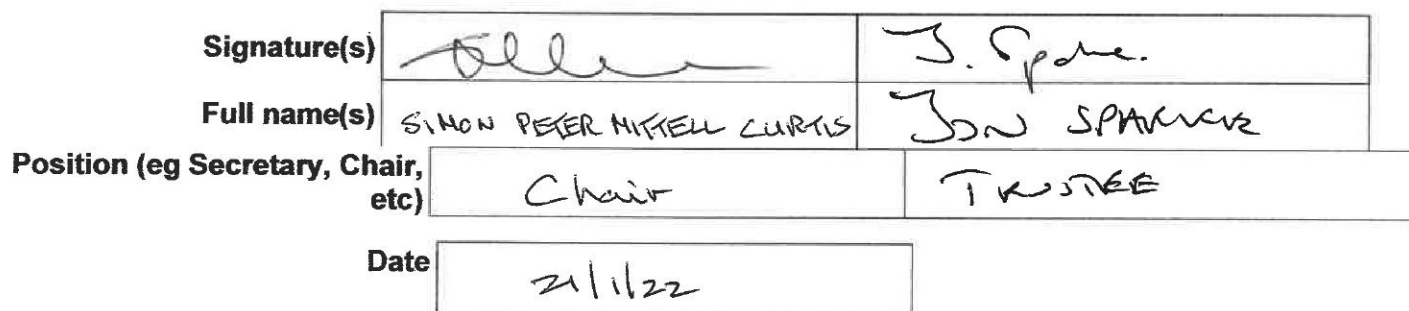 Signature(s) J. Spa
Full name(s) SIMON PETER MITTELL CURTIS JON
Position (eg Secretary, Chair,
etc) Chair TRUSTEE
Date 21/1/22